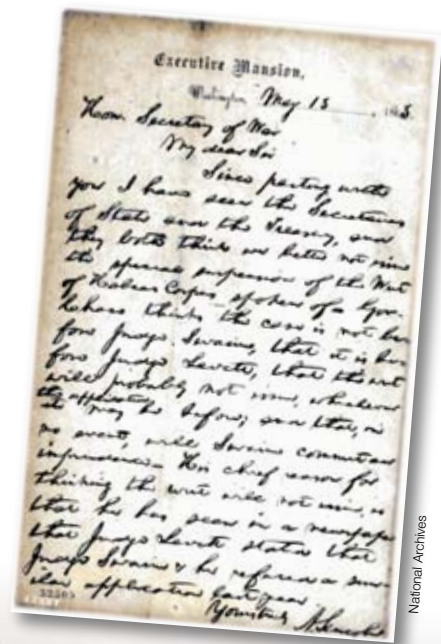 Executive Mansion,
Washington, May 13, 1863.
Hon. Secretary of War
My dear Sir
Since parting with
you I have seen the Secretaries
of State and the Treasury, and
they both think we better not issue
the special suspension of the Writ
of Habeas Corpus spoken of. Gov.
Chase thinks the case is not be-
fore Judge Swaine, that it is be-
fore Judge Levette, that the writ
will probably not issue, whichever
the application
it may be before; and that, in
no event, will Swaine commit an
imprudence. His chief reason for
thinking the writ will not issue, is
that he has seen in a newspaper
that Judge Levette stated that
Judge Swaine & he refused a simi-
lar application last year.
Yours truly A. Lincoln
National Archives